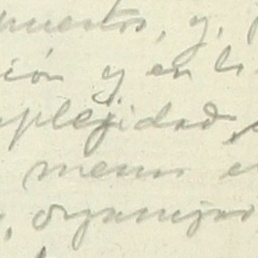 muestos, y,
ción y en l
mplejidad,
menos e
, organizar